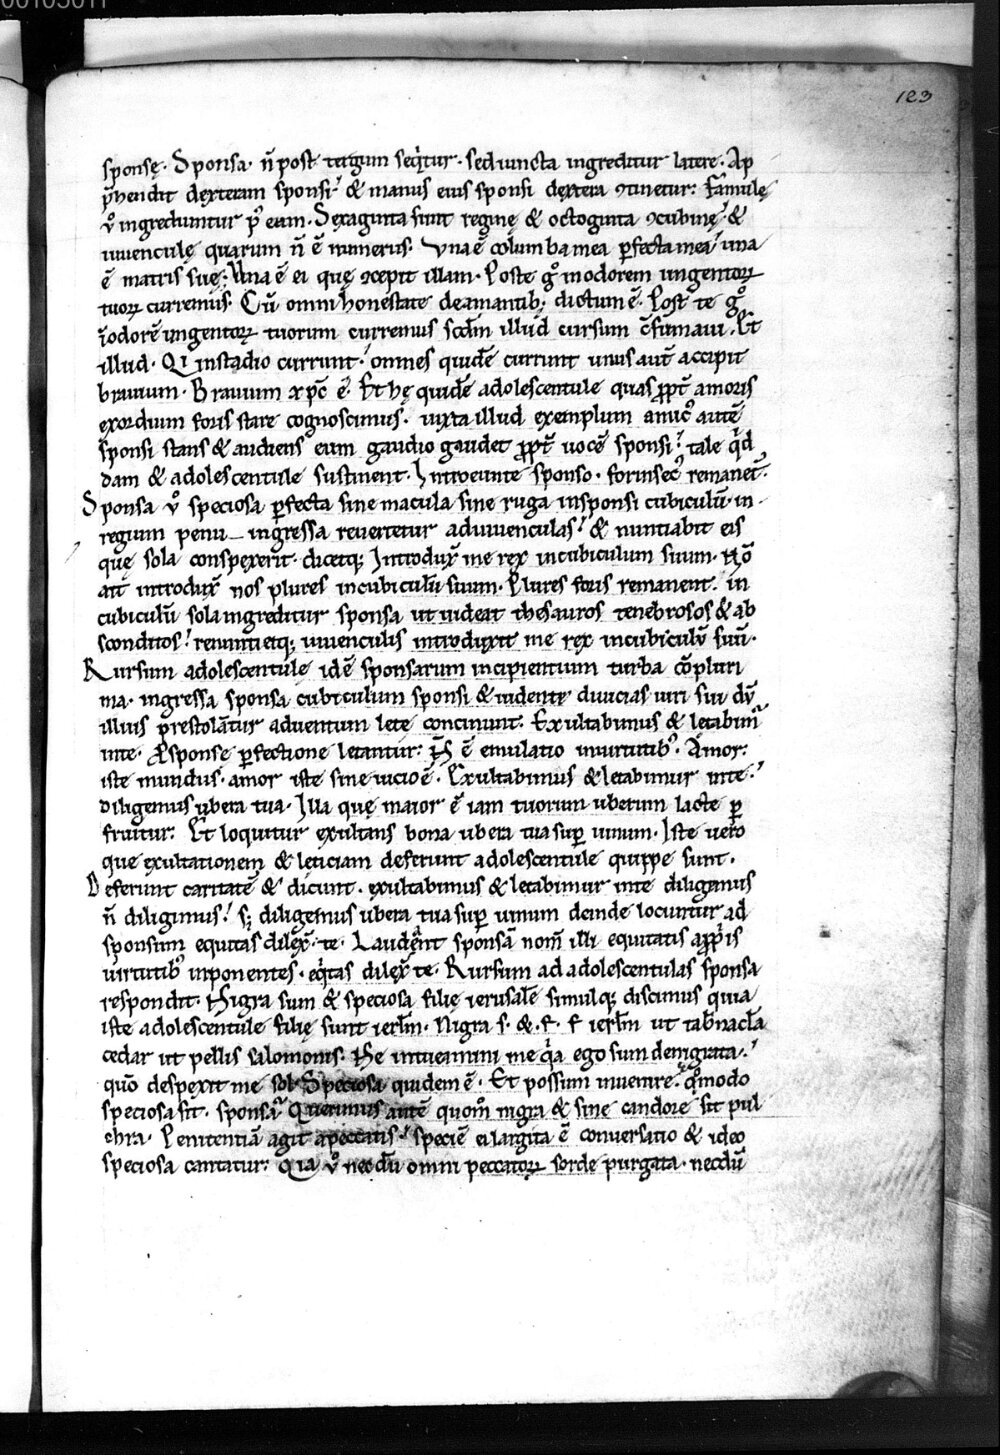 123
sponsę. Sponsa. n̄ post tergum seq̇tur. sed iuncta ingreditur latere. Ap
p̄hendit dexteram sponsi. & manus eius sponsi dextera ꝯtinetur. famulę
v̊ ingrediuntur p̊ eam. Sexaginta sunt reginę & octoginta ꝯcubinę. &
iuuenculę quarum n̄ ē numerus. Vna ē columba mea ꝑfecta mea. una
ē matris suę. Una ē ei quę ꝯcepit illam. Post te g̊ in odorem ungentoꝝ
tuoꝝ curremus. Cū omni honestate de amantib; dictum ē. Post te g̊
in odorē ungentoꝝ tuorum curremus scd̄m illud cursum ꝯsūmaui. Et
illud. Qui in stadio currunt. omnes quidē currunt unus aut̄ accipit
brauium. Brauium xp̄c ē. Et hę quidē adolescentule quas ꝓpt̄ amoris
exordium foris stare cognoscimus. iuxta illud exemplum amic̉ autē
sponsi stans & audiens eum gaudio gaudet ꝓpt̄ uocē sponsi. tale q̇d
dam & adolescentule sustinent. Introeunte sponso. forinsec̉ remanēt.
Sponsa v̊ speciosa ꝑfecta sine macula sine ruga in sponsi cubiculū. in
regium penu ingressa reuertetur ad iuuenculas. & nuntiabit eis
quę sola conspexerit. dicetq; Introdux̄ me rex in cubiculum suum. Nō
ait introdux̄ nos plures in cubiculū suum. Plures foris remanent. in
cubiculū sola ingreditur sponsa ut uideat thesauros tenebrosos & ab
sconditos. renuntietq; iuuenculis introduxit me rex in cubiculū suū.
Rursum adolescentulę idē sponsarum incipientium turba cōpluri
ma. ingressa sponsa cubiculum sponsi & uidente diuicias uiri sui dū
illius prestolātur aduentum lete concinunt. Exultabimus & letabim̉
in te. Ob sponse ꝑfectione letantur. n̄ ē emulatio in uirtutib̉. Amor
iste mundus. amor iste sine uicio ē. Exultabimus & letabimur in te.
diligemus ubera tua. Illa quę maior ē iam tuorum uberum lacte ꝑ
fruitur. Et loquitur exultans bona ubera tua suꝑ uinum. Iste uero
que exultationem & leticiam deferunt adolescentule quippe sunt.
Deferunt caritatē & dicunt. exultabimus & letabimur in te diligamus
n̄ diligimus. s; diligemus ubera tua suꝑ uinum deinde locuntur ad
sponsum equitas dilex̄ te. Laudent sponsā nom̄ illi equitatis a ꝓpriis
uirtutib̉ inponentes. eq̇tas dilex̄ te. Rursum ad adolescentulas sponsa
respondit. Nigra sum & speciosa filię ierusalē simulq; discimus quia
iste adolescentule filię sunt ierl̄m. Nigra s. &. f. f ierl̄m ut tab̄nacl̄a
cedar ut pellis salomonis. Ne intueamini me q̇a ego sum denigrata.
quō despexit me sol. Speciosa quidem ē. Et possum inuenire. q̊modo
speciosa sit. sponsa. Querimus autē quom̊ nigra & sine candore sit pul
chra. Penitentiā agit a peccatis. speciē ei largita ē conuersatio & ideo
speciosa cantatur. Quia v̊ necdū omni peccatoꝝ sorde purgata. necdū